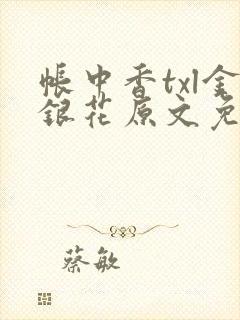 帳中香txl金
銀花原文免
蔡敏